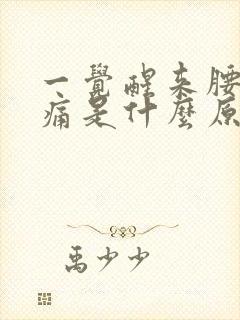 一覺醒来腰
痛是什麼原
禹少少